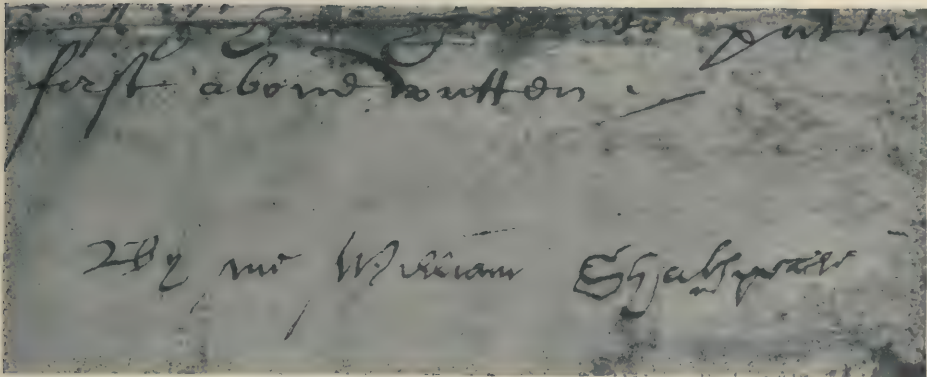 first above wrytten.
By me William Shakspeare